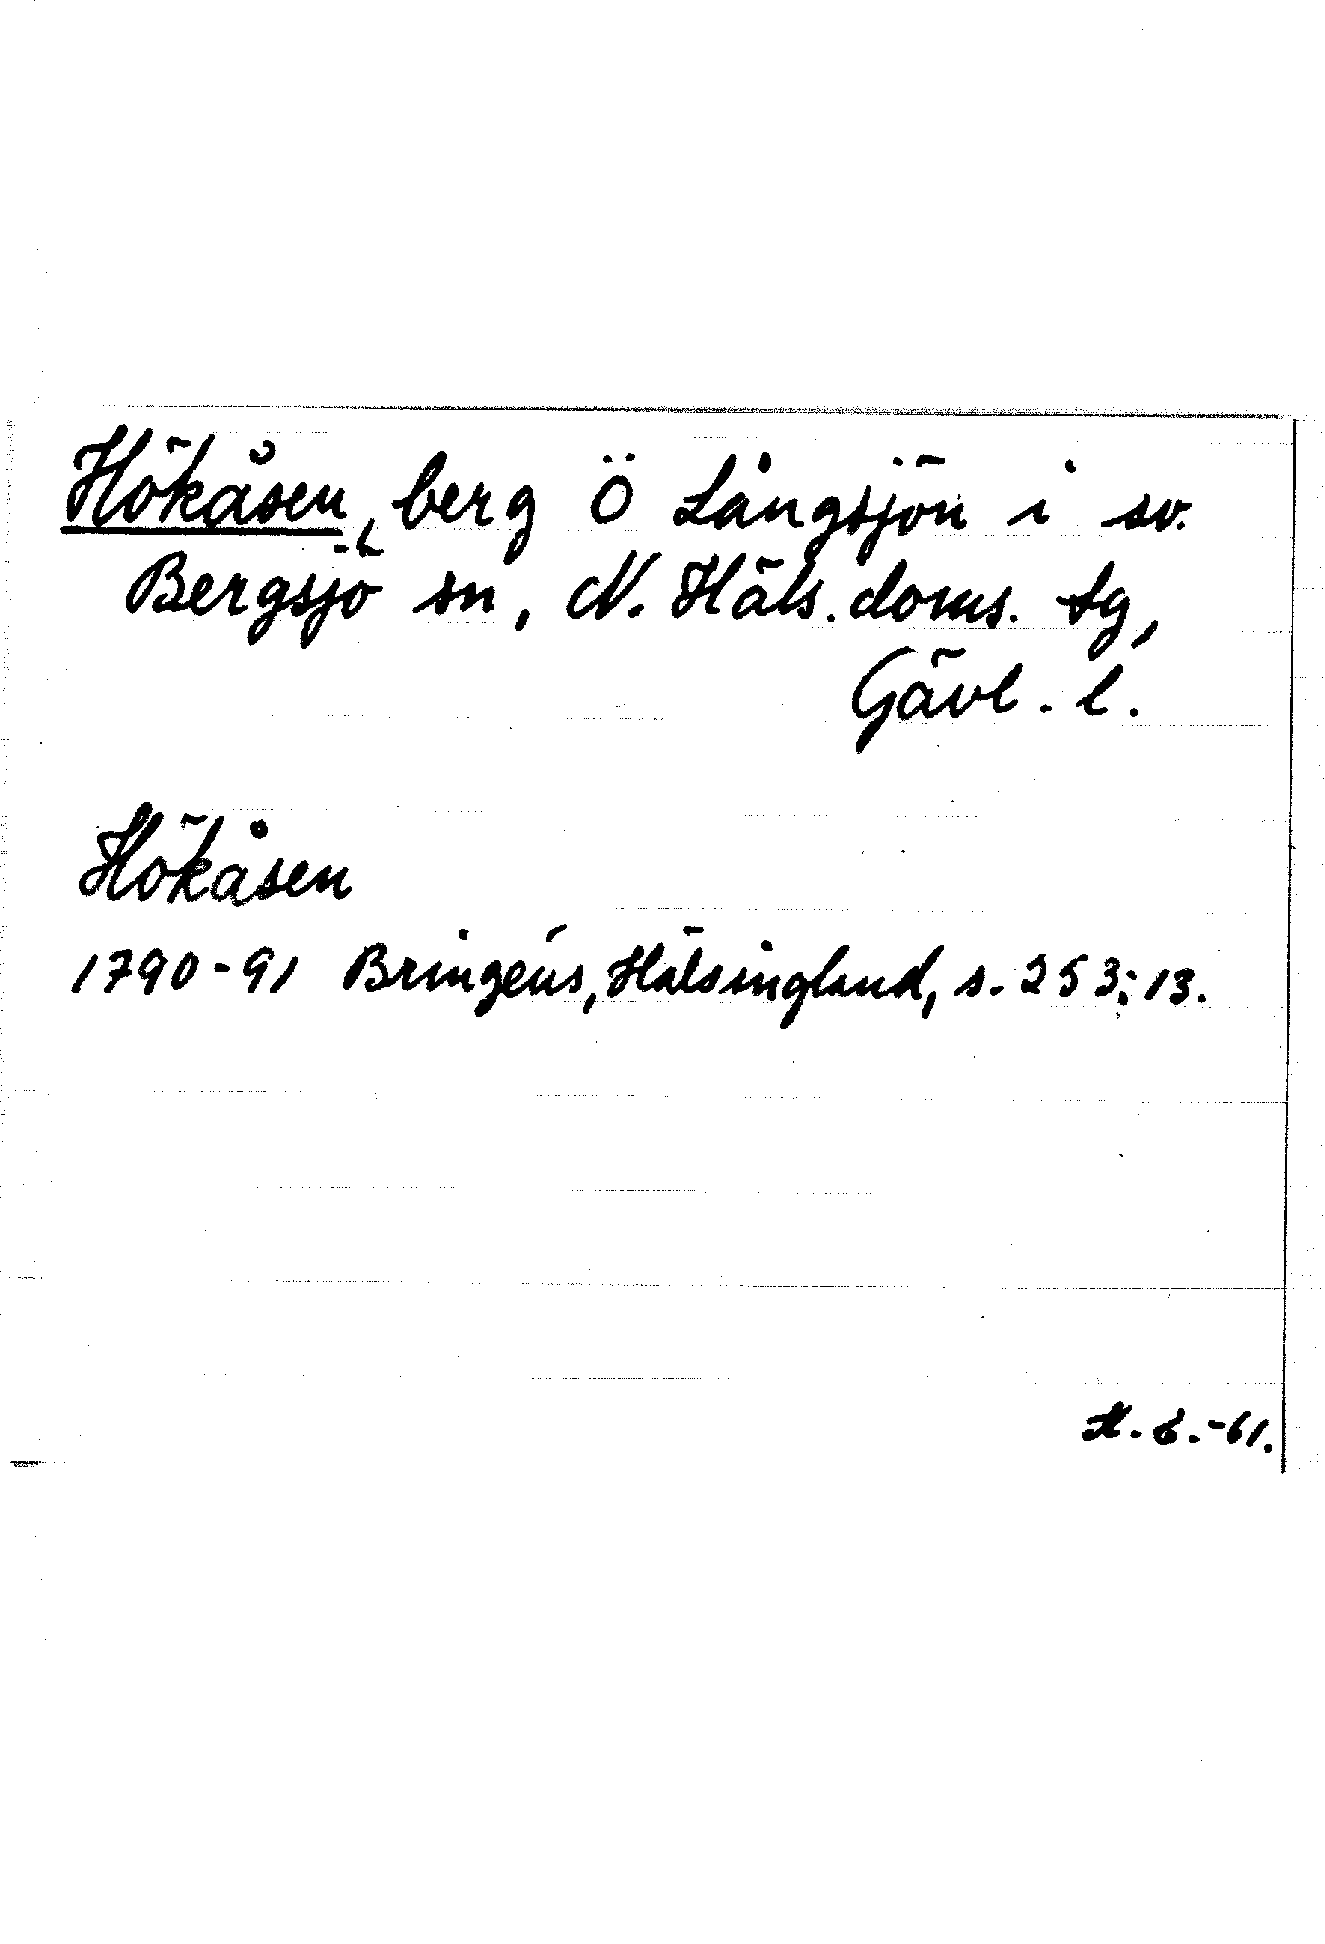 Hökåsen, berg Ö Långsjön i sv.
Bergsjö sn, N. Häls. doms. tg,
Gävl. l.
Hökåsen
1790-91 Bringéus, Hälsingland, s. 253:13.
-61.